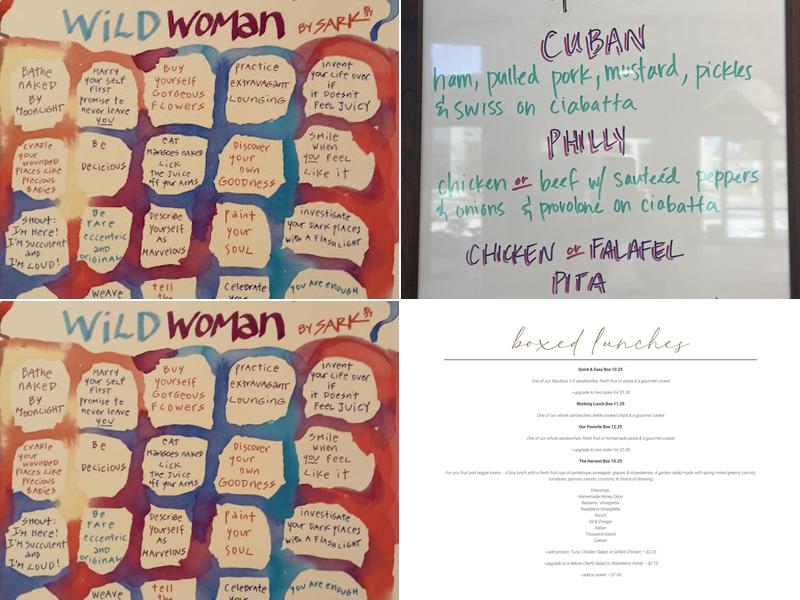 WiLD WOMAN BY SARK
BATHE
NAKED
BY
MOONLIGHT
MARRY
your self
FIRST
promise to
never leave
you
BUY
yourself
GORGEOUS
FLOWERS
PRACTICE
EXTRAVAGANT
LOUNGING
invent
your Life over
if
it Doesn't
FEEL JUICY
CRADLE
your
WOUNDED
PLACES Like
PRECIOUS
BABIES
Be
DELICIOUS
EAT
MANGOES NAKED
LICK
the Juice
off your ARMS
Discover
your
own
GOODNESS
SMILE
WHEN
you FEEL
Like it
SHOUT:
I'M HERE!
I'M Succulent
and
I'M LOUD!
Be
RARE
eccentric
and
ORIGINAL
Describe
yourself
AS
MARVELOUS
paint
your
SOUL
investigate
your DARK places
WITH A FLASHLIGHT
WEAVE
tell
the
Celebrate
your
you ARE enough
CUBAN
ham, pulled pork, mustard, pickles
& swiss on ciabatta
PHILLY
chicken or beef w/ sauteéd peppers
& onions & provolone on ciabatta
CHICKEN or FALAFEL
PITA
WiLD WOMAN BY SARK
BATHE
NAKED
BY
MOONLIGHT
MARRY
your self
FIRST
promise to
never leave
you
BUY
yourself
GORGEOUS
FLOWERS
PRACTICE
EXTRAVAGANT
LOUNGING
invent
your Life over
if
it Doesn't
FEEL JUICY
CRADLE
your
WOUNDED
PLACES Like
PRECIOUS
BABIES
Be
DELICIOUS
EAT
MANGOES NAKED
LICK
the Juice
off your ARMS
Discover
your
own
GOODNESS
SMILE
WHEN
you FEEL
Like it
SHOUT:
I'M HERE!
I'M Succulent
and
I'M LOUD!
Be
RARE
eccentric
and
ORIGINAL
Describe
yourself
AS
MARVELOUS
paint
your
SOUL
investigate
your DARK places
WITH A FLASHLIGHT
WEAVE
tell
the
Celebrate
your
you ARE enough
boxed lunches
Quick & Easy Box 10.25
One of our fabulous 1/2 sandwiches, fresh fruit or pasta & a gourmet cookie
~upgrade to two sides for $1.00
Working Lunch Box 11.25
One of our whole sandwiches, kettle cooked chips & a gourmet cookie
Our Favorite Box 12.25
One of our whole sandwiches, fresh fruit or homemade pasta & a gourmet cookie
~upgrade to two sides for $1.00
The Harvest Box 10.25
For you fruit and veggie lovers... A box lunch with a fresh fruit cup of cantaloupe, pineapple, grapes & strawberries, a garden salad made with spring mixed greens, carrots,
tomatoes, sprouts, onions, croutons, & choice of dressing
Dressings:
Homemade Honey Dijon
Balsamic Vinaigrette
Raspberry Vinaigrette
Ranch
Oil & Vinegar
Italian
Thousand Island
Caesar
~add protein: Tuna, Chicken Salad, or Grilled Chicken – $2.25
~upgrade to a deluxe Chef's Salad or Strawberry Fields – $2.75
~add a cookie – $1.00